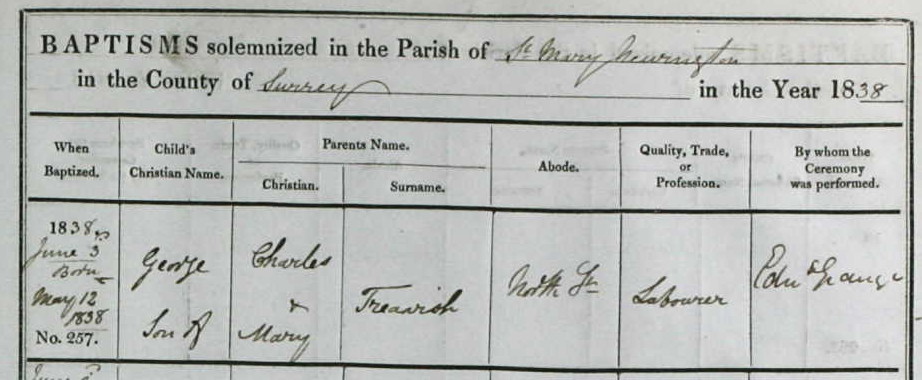 BAPTISMS solemnized in the Parish of St Mary Newington
in the County of Surrey in the Year 1838
When Baptized.
Child's Christian Name.
Parents Name.
Christian.
Surname.
Abode.
Quality, Trade, or Profession.
By whom the Ceremony was performed.
1838,
June 3
Born
May 12
1838
No. 257.
George
Son of
Charles
&
Mary
North St
Labourer